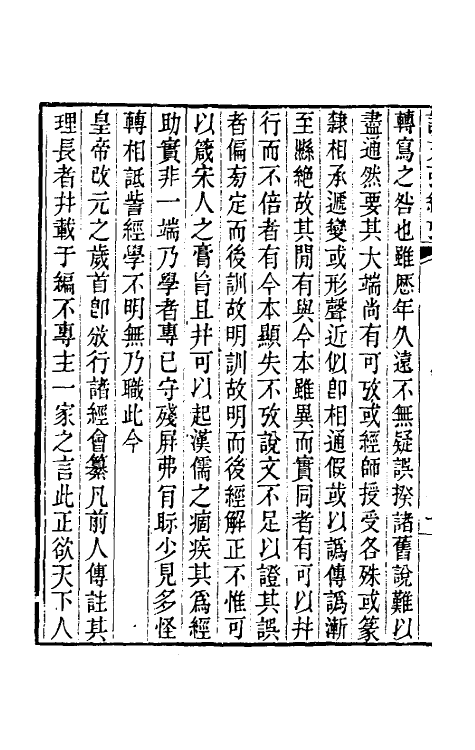 轉寫之咎也雖歷年久遠不無疑誤揆諸舊說難以
盡通然要其大端尚有可攷或經師授受各殊或篆
隸相承遞變或形聲近似卽相通假或以譌傳譌漸
至縣絶故其閒有與今本雖異而實同者有可以幷
行而不倍者有今本顯失不攷說文不足以證其誤
者偏旁定而後訓故明訓故明而後經解正不惟可
以箴宋人之膏肓且幷可以起漢儒之痼疾其爲經
助實非一端乃學者專己守殘屏弗肎眎少見多怪
轉相詆訾經學不明無乃職此今
皇帝改元之歲首卽敓行諸經會纂凡前人傳註其
理長者幷載于編不專主一家之言此正欲天下人